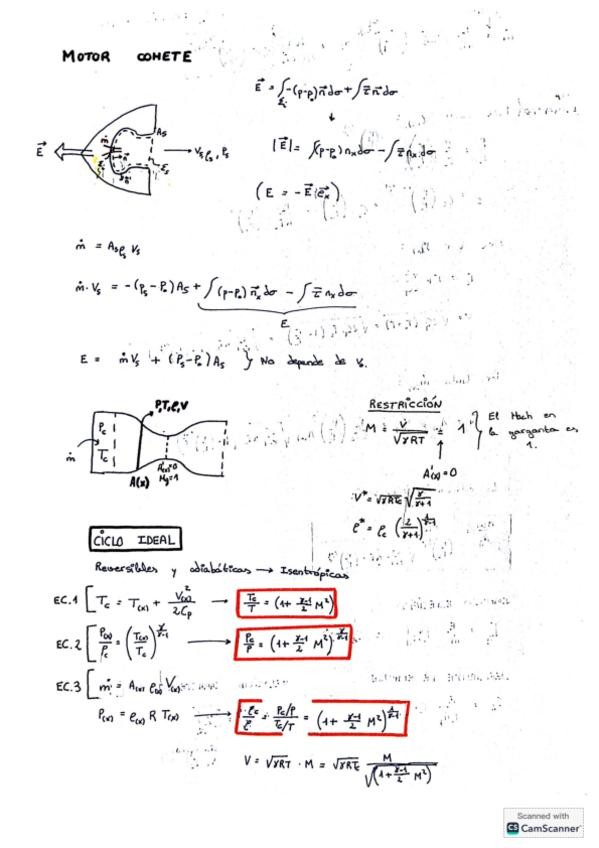 MOTOR COHETE
E⃗ = ∫_Σi -(p-p₀) n⃗ dσ + ∫ τ̄ n⃗ dσ
↓
|E⃗| = ∫(p-p₀) nₓ dσ - ∫ τ̄ nₓ dσ
(E = -E⃗ e⃗ₓ)
E⃗ ṁ Aₛ Vₛ ρₛ, Pₛ Σₛ
ṁ = Aₛ ρₛ Vₛ
ṁ·Vₛ = -(Pₛ-P₀)Aₛ + ∫(p-p₀) n⃗ₓ dσ - ∫ τ̄ nₓ dσ
E
E = ṁVₛ + (Pₛ-P₀)Aₛ } No depende de V₀.
P,T,ρ,V
ṁ Pc Tc
A'(x)=0
Mg=1
A(x)
RESTRICCIÓN
M = V/√γRT = 1 } El Mach en la garganta es 1.
A'(x)=0
V* = √γRTc √(2/(γ+1))
ρ* = ρc (2/(γ+1))^(1/(γ-1))
CICLO IDEAL
Reversibles y adiabáticas → Isentrópicas
EC.1 [ Tc = T(x) + V(x)²/2Cp → Tc/T = (1+ (γ-1)/2 M²)
EC.2 [ P(x)/Pc = (T(x)/Tc)^(γ/(γ-1)) → Pc/P = (1+ (γ-1)/2 M²)^(γ/(γ-1))
EC.3 [ ṁ = A(x) ρ(x) V(x)
P(x) = ρ(x) R T(x) → ρc/ρ = (Pc/P)/(Tc/T) = (1+ (γ-1)/2 M²)^(1/(γ-1))
V = √γRT · M = √γRTc M/√(1+ (γ-1)/2 M²)
Scanned with
CS CamScanner